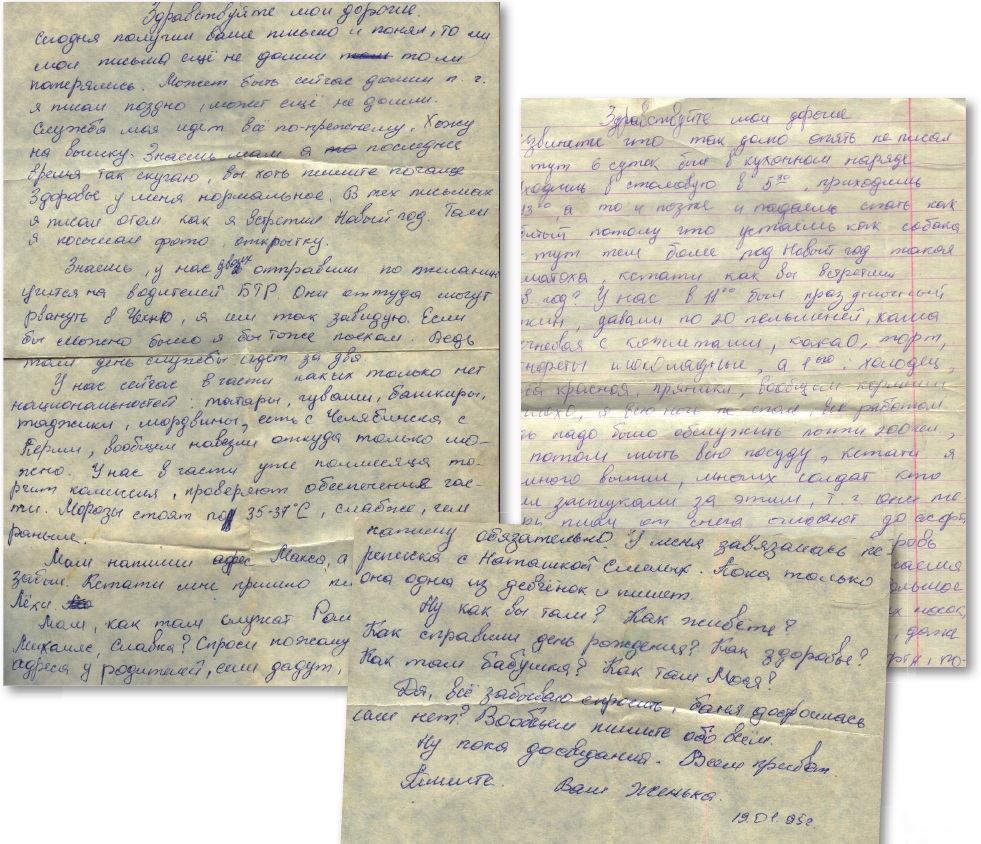 Здравствуйте мои дорогие.
Сегодня получил ваше письмо и понял, то ли
мои письма ещё не дошли то ли
потерялись. Может быть сейчас дошли т. г.
я писал поздно, может ещё не дошли.
Служба моя идёт всё по-прежнему. Хожу
на вышку. Знаешь мам а последнее
время так скучаю, вы хоть пишите почаще
Здоровье у меня нормальное. В тех письмах
я писал отом как я встретил Новый год. Там
я посылал фото, открытку.
Знаешь, у нас двоих отправили по желанию
учится на водителей БТР. Они оттуда могут
рвануть в Чечню, я им так завидую. Если
бы можно было я бы тоже поехал. Ведь
там день службы идёт за два
У нас сейчас в части каких только нет
национальностей: татары, чуваши, башкиры,
таджики, мордвины, есть с Челябинска, с
Перми, вообщем навезли откуда только мо-
жно. У нас в части уже полмесяца то-
рчит комиссия, проверяют обеспечения час-
ти. Морозы стоят по 35-37°С, слабже, чем
раньше.
Мам напиши адрес Макса, а
забыл. Кстати мне пришло пи
Лёхи.
Мам, как там служат Ром
Михалыс, Славка? Спроси пожалу
адреса у родителей, если дадут,
напишу обязательно. У меня завязалась пе-
реписка с Наташкой Смелых. Пока только
она одна из девчёнок и пишет.
Ну как вы там? Как живёте?
Как справили день рождения? Как здоровье?
Как там бабушка? Как там Мося?
Да, всё забываю спросить, баня достроилась
или нет? Вообщем пишите обо всём.
Ну пока досвидания. Всем привет.
Пишите. Ваш Женька.
19.01.95г.
Здравствуйте мои дорогие
звините что так долго опять не писал
тут 6 суток был в кухонном наряде
ходишь в столовую в 5⁰⁰, приходишь
3⁰⁰, а то и позже и падаешь спать как
битый потому что устаёшь как собака
тут тем более под Новый год такая
матоха, кстати как вы встретили
год? У нас в 11⁰⁰ был праздничный
жин, давали по 20 пельменей, каша
чневая с котлетами, какао, торт,
нфеты шоколадные, а 1⁰⁰: холодец,
ба красная, пряники, вообщем кормили
плохо, я всю ночь не спал, всё работал
ть надо было обслужить почти 200чел,
потом мыть всю посуду, кстати я
много выпил, многих солдат кто
ли застукали за этим, т. г. они те-
рь плац от снега очищают до асфа